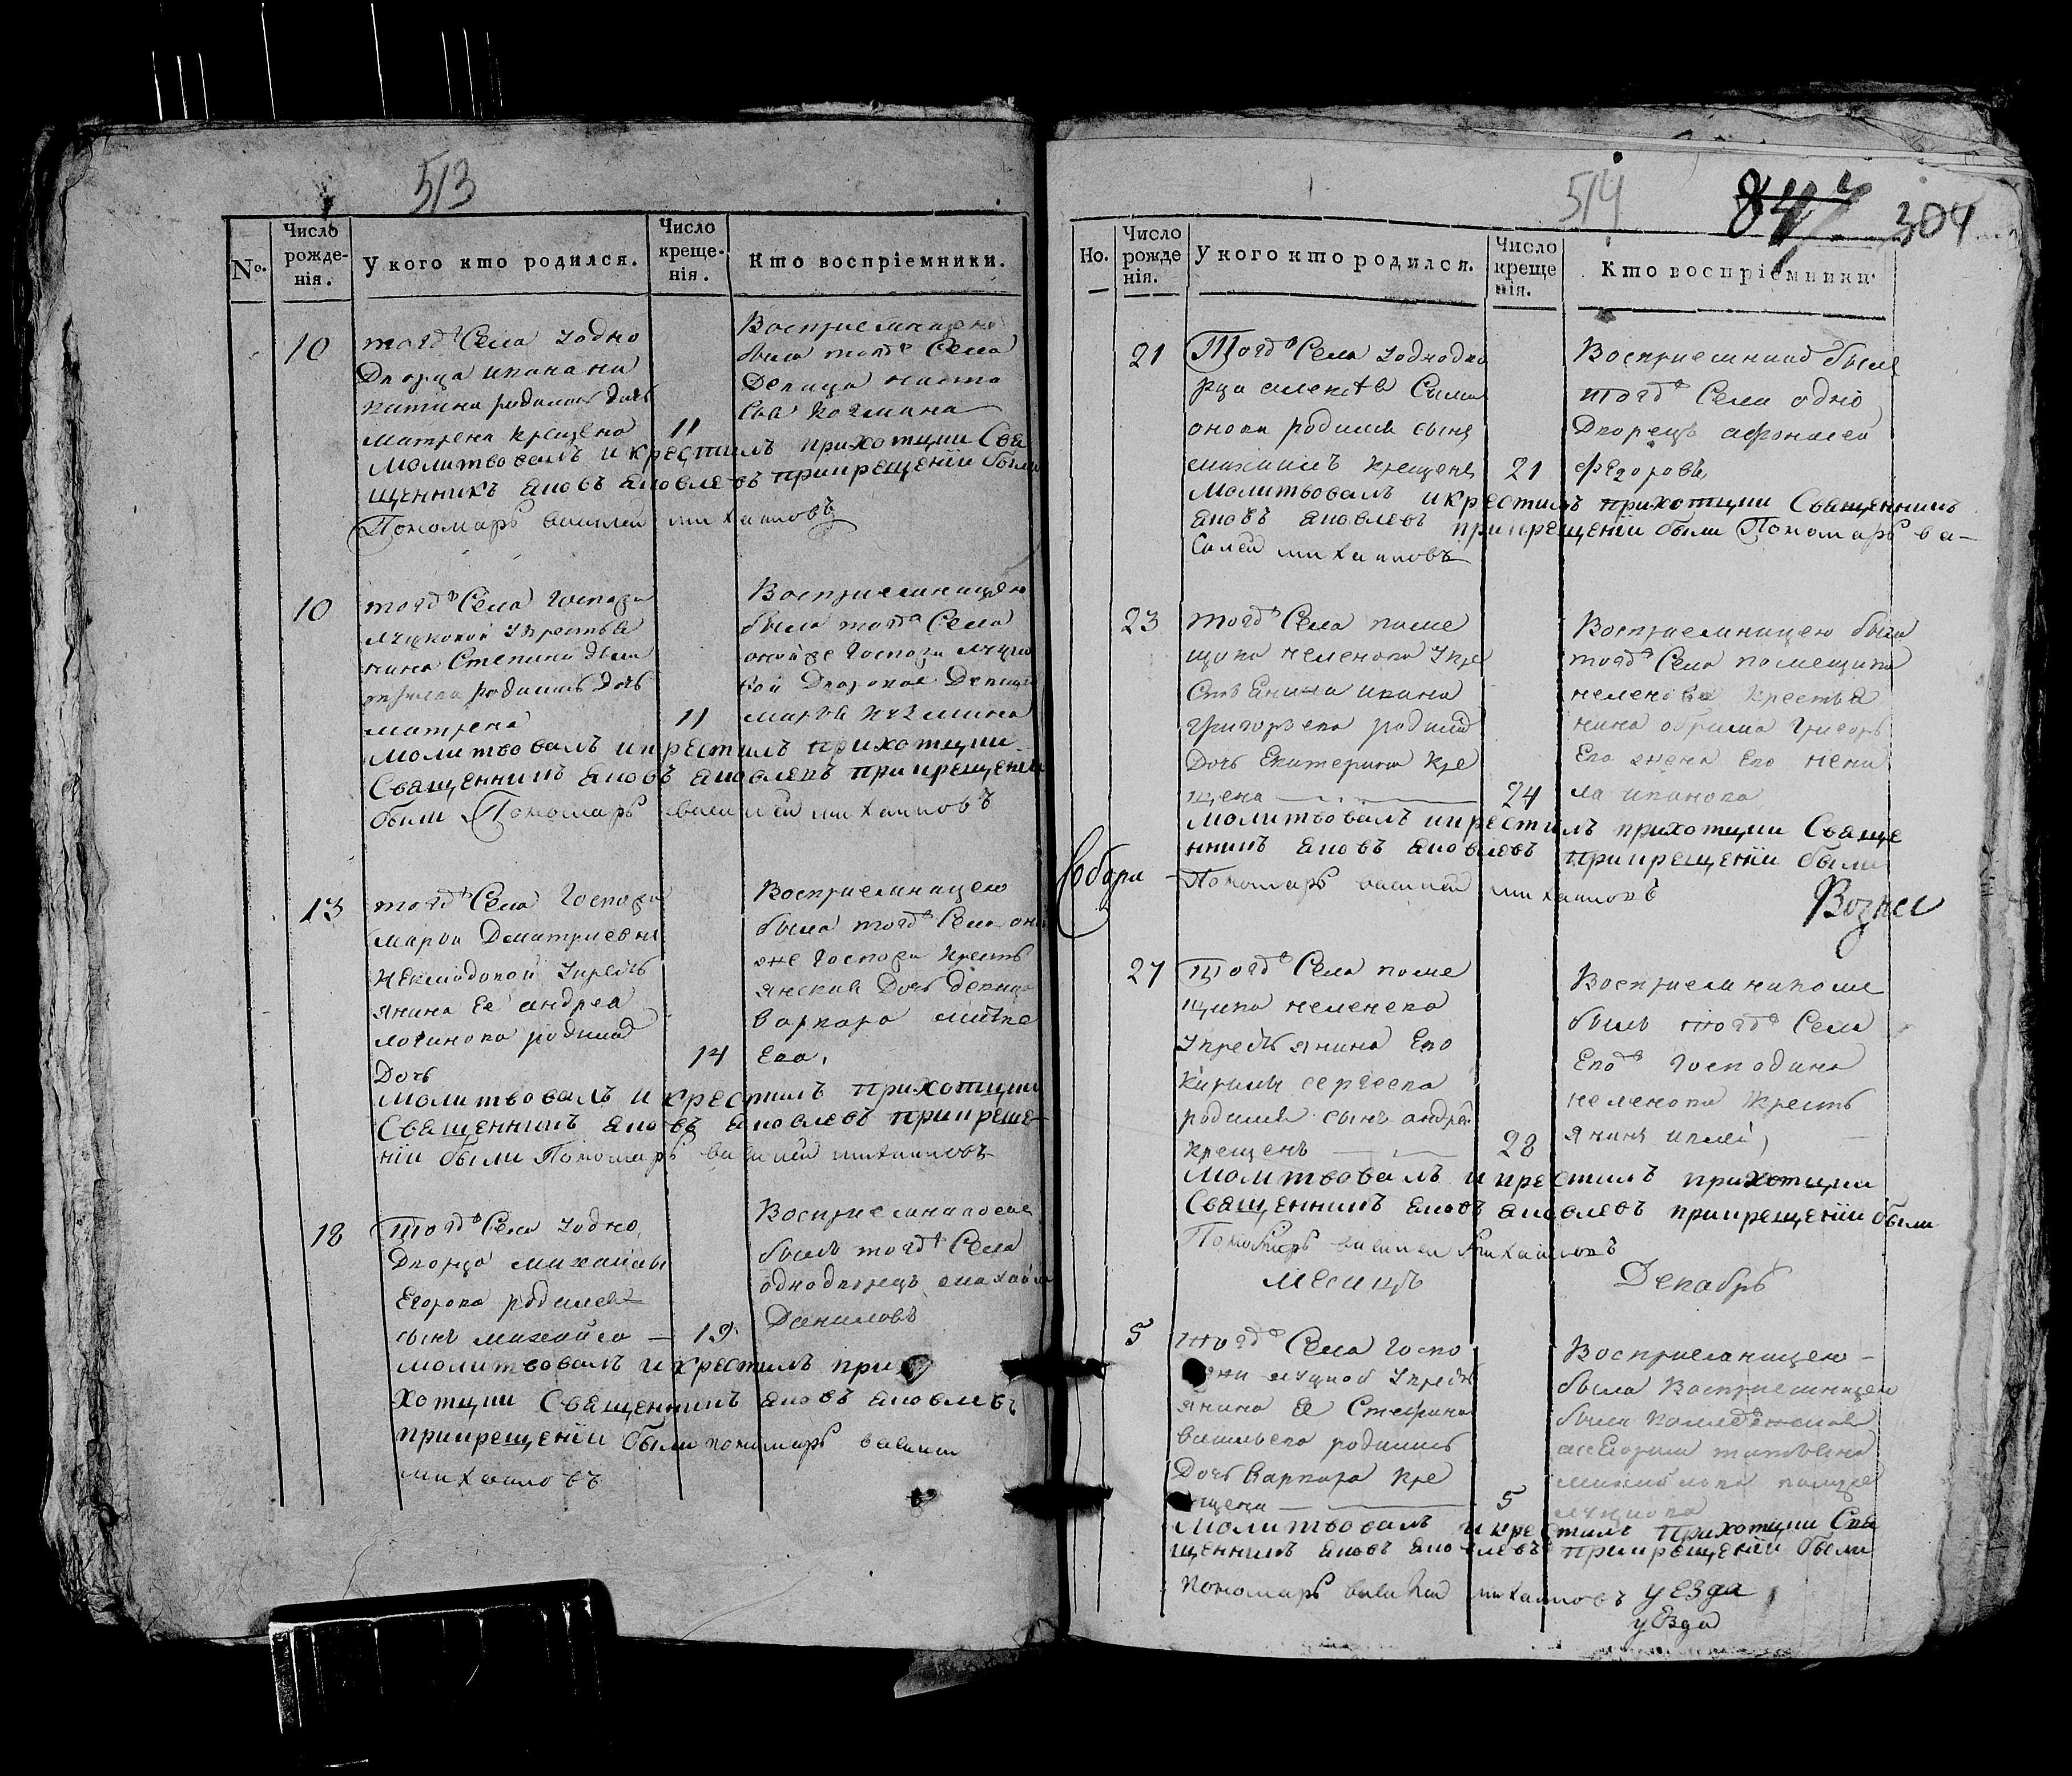 513
№.
Число рожде-нія.
У кого кто родился.
Число креще-нія.
Кто воспріемники.
10
тогоже Села уодно
Дворца ивана ни
китина родилась дочь
матрена крещена
11
Восприемницею
была тогоже Села
Девица наста
сья
молитвовалъ и крестилъ прихотции Свя
щенникъ яковъ яковлевъ прикрещеніи были
Пономарь василей михаиловъ
10
тогоже Села госпожи
крестья
нина Степана
родилась дочь
матрена
11
Восприемницею
была тогоже Села
онойже госпожи
дворовая Девица
марфа
молитвовалъ икрестилъ прихотции
Священникъ яковъ яковлевъ прикрещении
были Пономарь василей михаиловъ
13
тогоже Села госпожи
марьи Дмитриевны
укресть
янина Ее андреа
логинова родилась
Дочь
14
Восприемницею
была тогоже Села он
же госпожи кресть
янская Дочь девица
варвара
Ева,
молитвовалъ и крестилъ прихотции
Священникъ яковъ яковлевъ прикреще-
ніи были Пономарь василей михаиловъ
18
Тогоже Села уодно
Дворца михаилы
Егорова родился
сынъ михайло —
19
Восприемникомъ
былъ тогоже Села
однодворецъ михайла
Даниловъ
молитвовалъ и крестилъ при
хотции Священникъ яковъ яковлевъ
прикрещеніи были пономарь василей
михаиловъ
514
847
304
Но.
Число рожде нія.
У кого кто родился.
Число креще нія.
Кто воспріемники.
21
Тогоже Села уоднодво
рца алексея Сима
нова родился сынъ
михаилъ крещенъ
21
Восприемникъ былъ
тогоже Села одно
Дворецъ афонасей
Федоровъ
молитвовалъ икрестилъ прихотции Священникъ
яковъ яковлевъ прикрещеніи были Пономарь ва-
силей михаиловъ
23
тогоже Села поме
щика неленова укре
стьянина ивана
григорьева родилась
Дочь Екатерина кре
щена —
24
Восприемницею была
тогоже Села помещика
неленова крестья
нина григорь
ева жена его нени
ла иванова
молитвовалъ икрестилъ прихотции Свяще
нникъ яковъ яковлевъ прикрещеніи были
Пономарь василей михаиловъ
Собора
Возне
27
Тогоже Села поме
щика неленева
укрестьянина Ево
Кирилы сергеева
родился сынъ андрей
крещенъ —
28
Восприемникомъ
былъ тогоже Села
Евоже господина
неленова кресть
янинъ
молитвовалъ и крестилъ прихотции
Священникъ яковъ яковлевъ прикрещеніи были
Пономарь василей михаиловъ
месицъ Декабрь
5
тогоже Села госпо
жи укресть
янина ея Стефана
васильева родилась
Дочь варвара кре
щена —
5
Восприемницею —
была Восприемницею
была
татьяна
михайлова
молитвовалъ икрестилъ прихотции Свя
щенникъ яковъ яковлевъ прикрещеніи были
пономарь василей михаиловъ
уЕзда
уЕзда